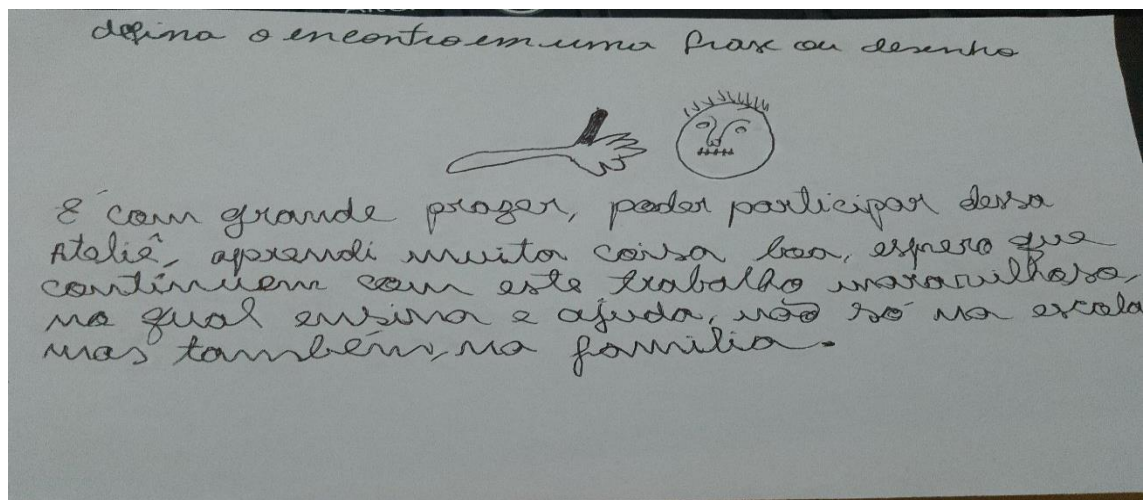 defina o encontro em uma frase ou desenho
É com grande prazer, poder participar dessa
Ateliê, aprendi muita coisa boa, espero que
continuem com este trabalho maravilhoso,
na qual ensina e ajuda, não só na escola
mas também, na família.